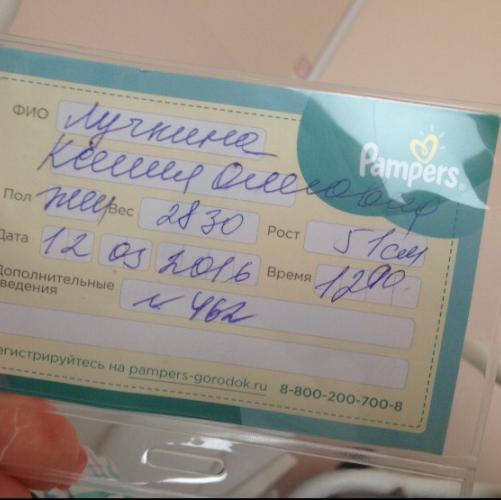 Pampers®
ФИО Лучкина
Ксения Олеговна
Пол жен Вес 2830 Рост 51 см
Дата 12 03 2016 Время 12 00
Дополнительные
ведения
н 462
егистрируйтесь на pampers-gorodok.ru 8-800-200-700-8